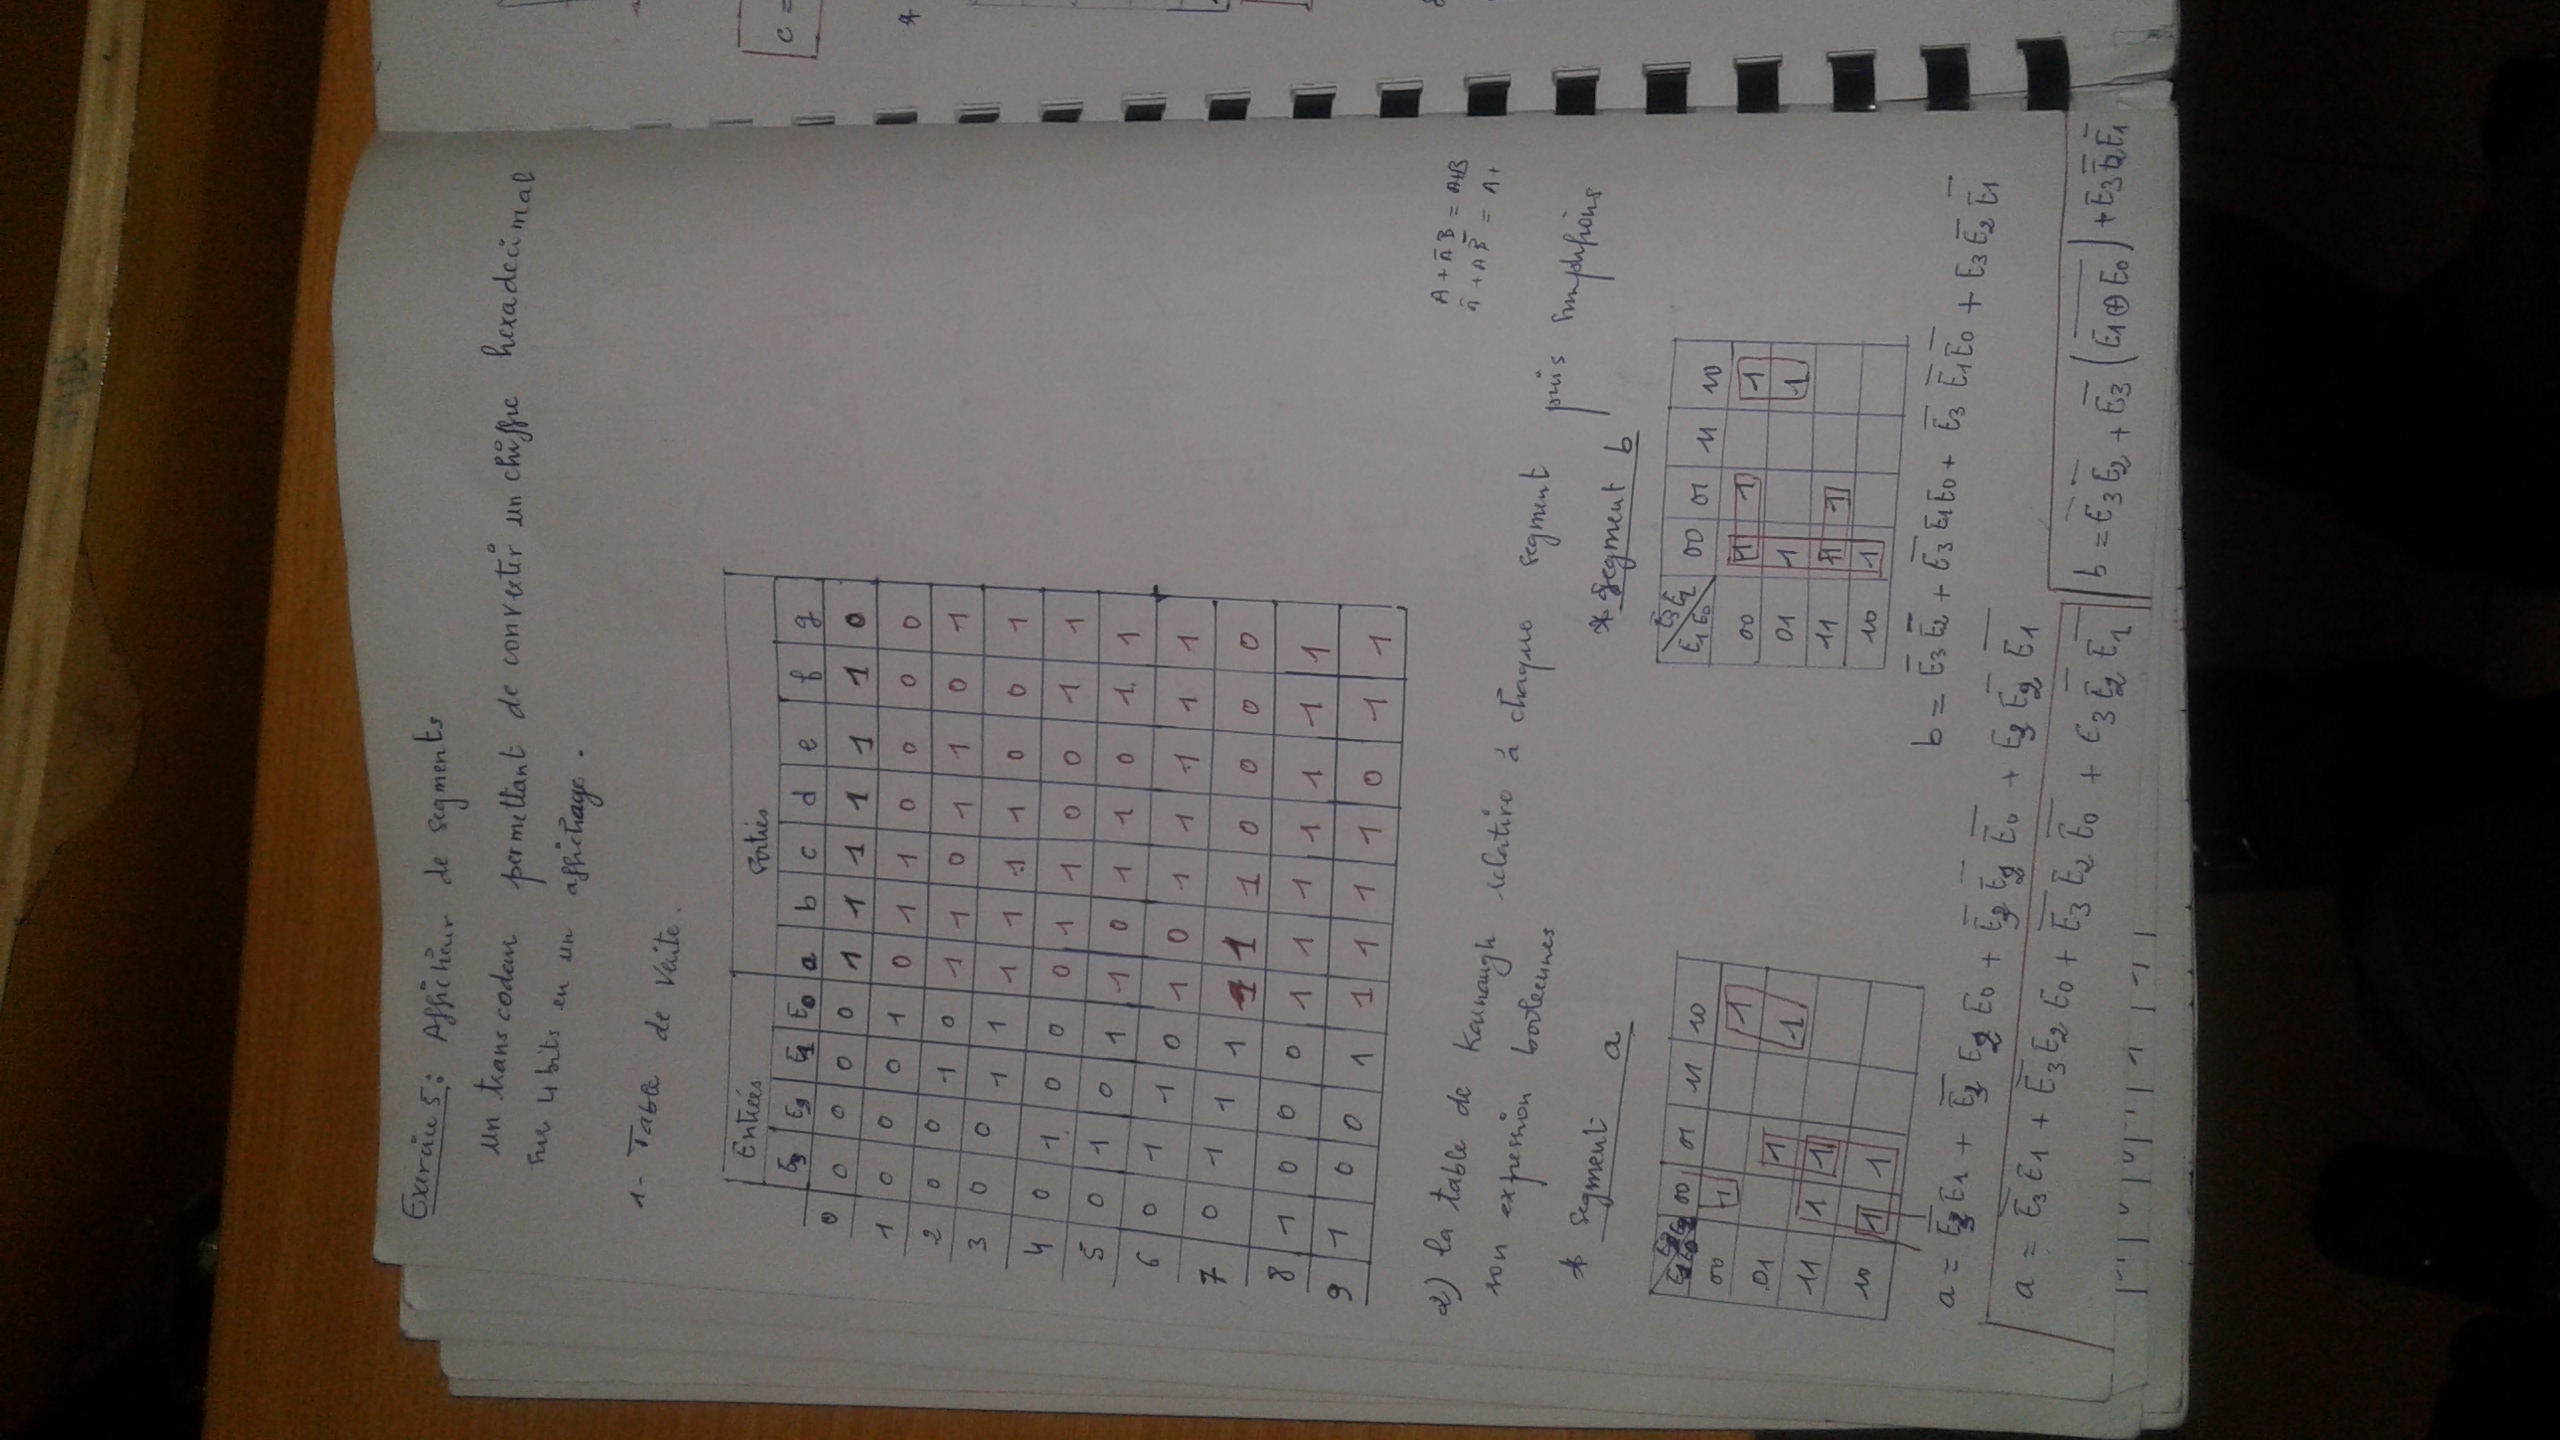 Exercice 5: Afficheur de segments
un transcodeur permettant de convertir un chiffre hexadecimal
sur 4 bits en un affichage.
1- Table de Verite.
Entrées Sorties
E3 E2 E1 E0 a b c d e f g
0 0 0 0 0 1 1 1 1 1 1 0
1 0 0 0 1 0 1 1 0 0 0 0
2 0 0 1 0 1 1 0 1 1 0 1
3 0 0 1 1 1 1 1 1 0 0 1
4 0 1 0 0 0 1 1 0 0 1 1
5 0 1 0 1 1 0 1 1 0 1 1
6 0 1 1 0 1 0 1 1 1 1 1
7 0 1 1 1 1 1 1 0 0 0 0
8 1 0 0 0 1 1 1 1 1 1 1
9 1 0 0 1 1 1 1 1 0 1 1
A + A̅ B = A+B
A̅ + A B̅ = A +
2) la table de Karnaugh relative à chaque segment puis simplifions
son expression booleennes
* segment a
E3E2 00 01 11 10
E1E0
00 1 1
01 1 1
11 1 1
10 1 1
a = E̅3 E1 + E̅3 E2 E0 + E̅3 E̅2 E̅0 + E3 E̅2 E̅1
a = E̅3 E1 + E̅3 E2 E0 + E̅3 E2 E̅0 + E3 E̅2 E̅1
* segment b
E3E2 00 01 11 10
E1E0
00 1 1 1
01 1 1
11 1 1
10 1
b = E̅3 E̅2 + E̅3 E1 E0 + E̅3 E̅1 E̅0 + E3 E̅2 E̅1
b = E̅3 E̅2 + E̅3 (E̅1̅ ̅⊕̅ ̅E̅0̅) + E3 E̅2 E̅1
c =